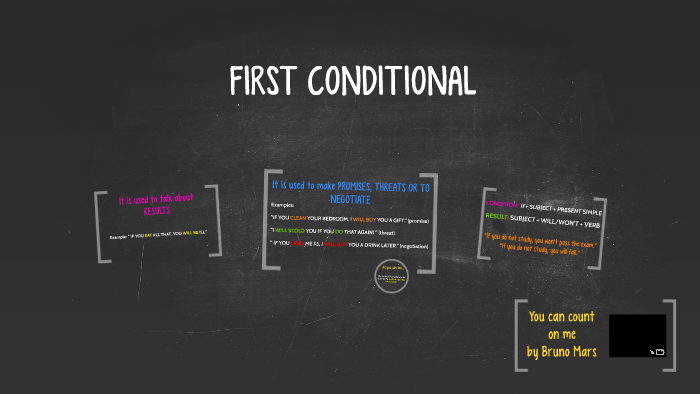 FIRST CONDITIONAL
It is used to talk about
RESULTS
Example: "IF YOU EAT ALL THAT, YOU WILL BE ILL"
It is used to make PROMISES, THREATS OR TO
NEGOTIATE
Examples:
"IF YOU CLEAN YOUR BEDROOM, I WILL BUY YOU A GIFT" (promise)
"I WILL SCOLD YOU IF YOU DO THAT AGAIN!" (threat)
" IF YOU ME $5, I WILL BUY YOU A DRINK LATER" (negotiation)
CONDITION: IF + SUBJECT + PRESENT SIMPLE
RESULT: SUBJECT + WILL/WON'T + VERB
"If you do not study, you won't pass the exam."
"If you do not study, you will fail."
You can count
on me
by Bruno Mars